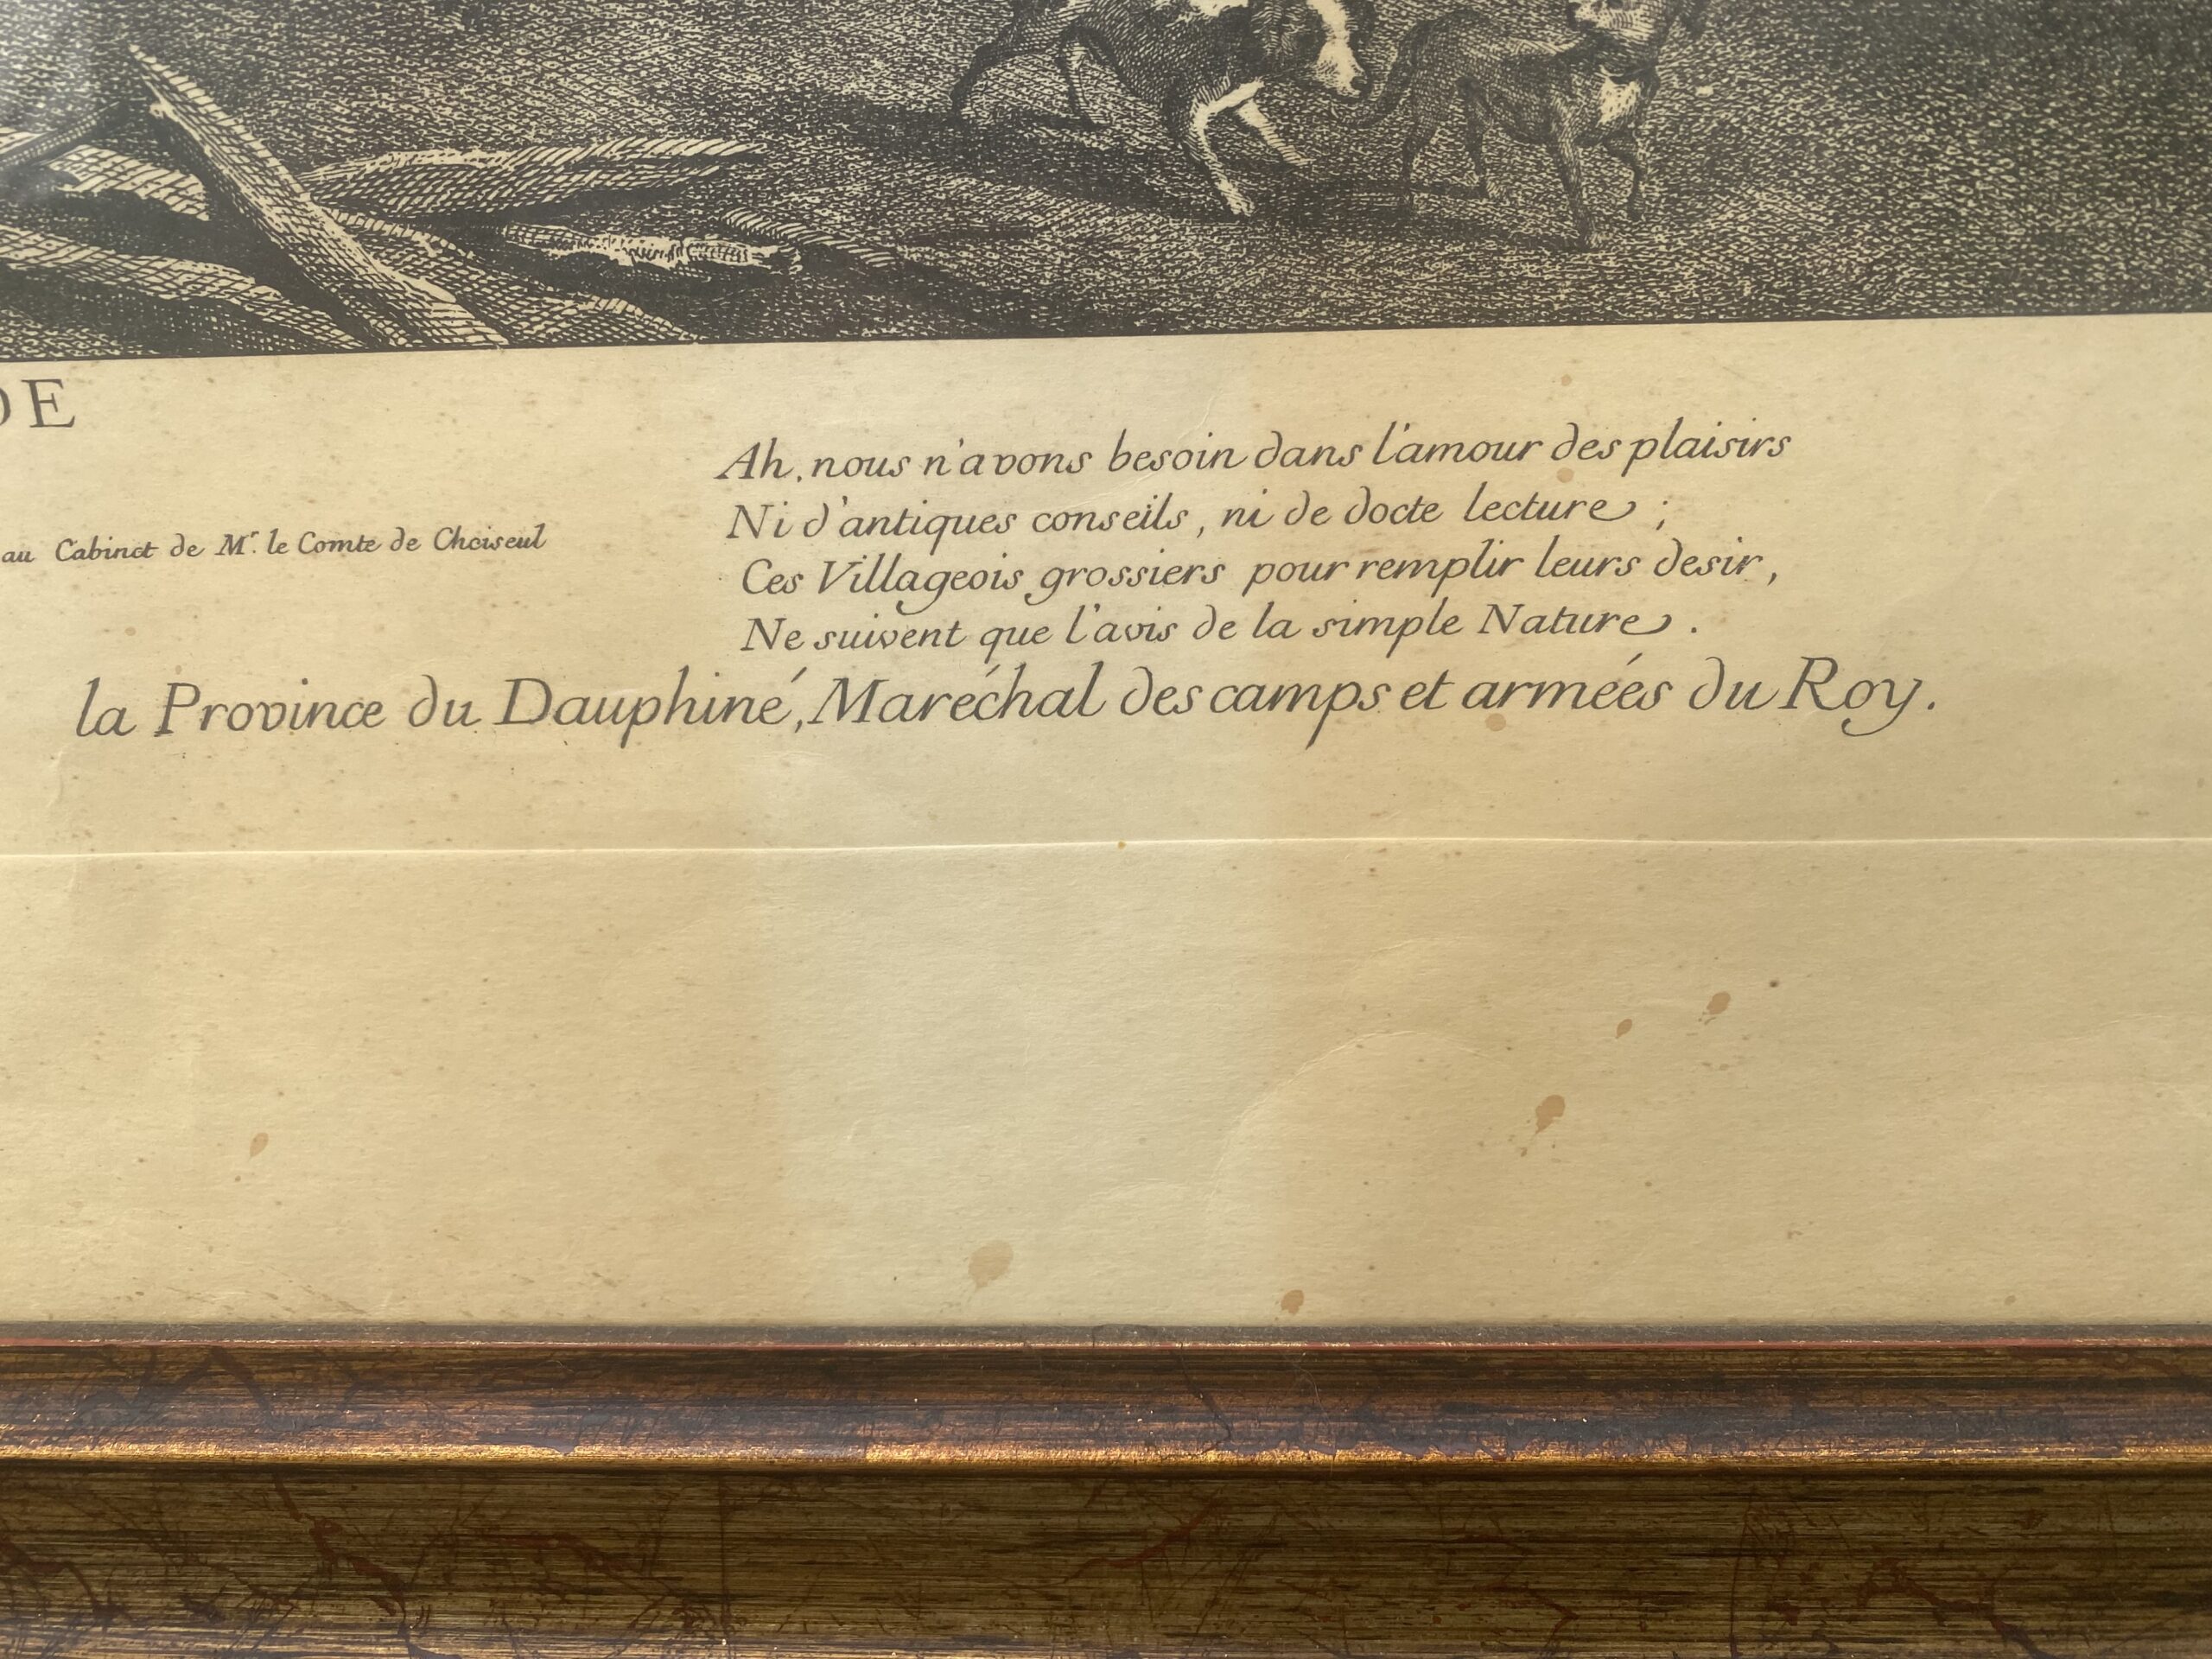 DE
Ah, nous n'avons besoin dans l'amour des plaisirs
Ni d'antiques conseils, ni de docte lecture ;
au Cabinet de Mr. le Comte de Choiseul
Ces Villageois grossiers pour remplir leurs desir,
Ne suivent que l'avis de la simple Nature .
la Province du Dauphiné, Maréchal des camps et armées du Roy.